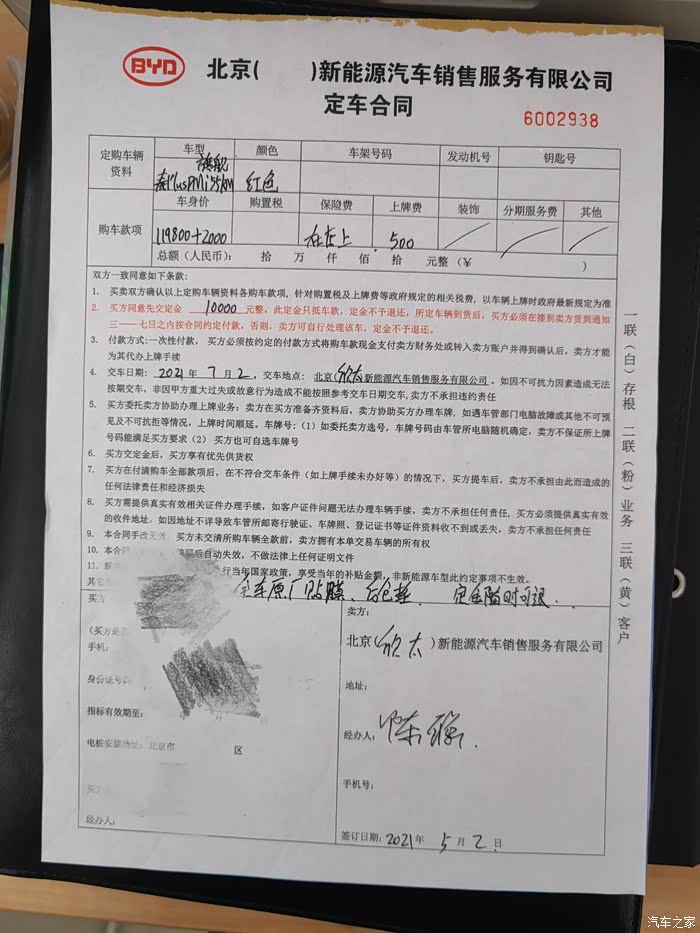 BYD 北京( )新能源汽车销售服务有限公司
定车合同
6002938
定购车辆资料 车型 颜色 车架号码 发动机号 钥匙号
旗舰
秦PlusDMi55km 红色
购车款项 车身价 购置税 保险费 上牌费 装饰 分期服务费 其他
119800+2000 500
总额（人民币）： 拾 万 仟 佰 拾 元整（￥ ）
双方一致同意如下条款：
1. 买卖双方确认以上定购车辆资料各购车款项，针对购置税及上牌费等政府规定的相关税费，以车辆上牌时政府最新规定为准
2. 买方同意先交定金 10000 元整，此定金只抵车款，定金不予退还，所定车辆到货后，买方必须在接到卖方货到通知
三——七日之内按合同约定付款，否则，卖方可自行处理该车，定金不予退还。
3. 付款方式:一次性付款， 买方必须按约定的付款方式将购车款现金支付卖方财务处或转入卖方账户并得到确认后，卖方才能
为其代办上牌手续
4. 交车日期： 2021年 7月 2、交车地点： 北京(欣太)新能源汽车销售服务有限公司 。如因不可抗力因素造成无法
按期交车，非因甲方重大过失或故意行为造成不能按照参考交车日期交车,卖方不承担违约责任
5. 买方委托卖方协助办理上牌业务：卖方在买方准备齐资料后，卖方协助买方办理车牌，如遇车管部门电脑故障或其他不可预
见及不可抗拒等情况，上牌时间顺延。车牌号：（1）如委托卖方选号，车牌号码由车管所电脑随机确定，卖方不保证所上牌
号码能满足买方要求（2） 买方也可自选车牌号
6. 买方交定金后，买方享有优先供货权
7. 买方在付清购车全部款项后，在不符合交车条件（如上牌手续未办好等）的情况下，买方提车后，卖方不承担由此而造成的
任何法律责任和经济损失
8. 买方需提供真实有效相关证件办理手续，如客户证件问题无法办理车辆手续，卖方不承担任何责任，买方必须提供真实有效
的收件地址，如因地址不详导致车管所邮寄行驶证、车牌照、登记证书等证件资料收不到或丢失，卖方不承担任何责任
9. 本合同手改无效，买方未交清所购车辆全款前，卖方拥有本单交易车辆的所有权
10. 本合同 后自动失效，不做法律上任何证明文件
11. 行当年国家政策，享受当年的补贴金额，非新能源车型此约定事项不生效。
其它 全车原厂贴膜、后仓垫 定金随时可退.
买方 卖方：
北京(欣太)新能源汽车销售服务有限公司
（买方是否
手机：
地址：
身份证号码：
指标有效期至： 经办人：
电桩安装地址：北京市 区
手机号：
买方
经办人： 签订日期：2021年 5月 2日
一联（白）存根 二联（粉）业务 三联（黄）客户
汽车之家